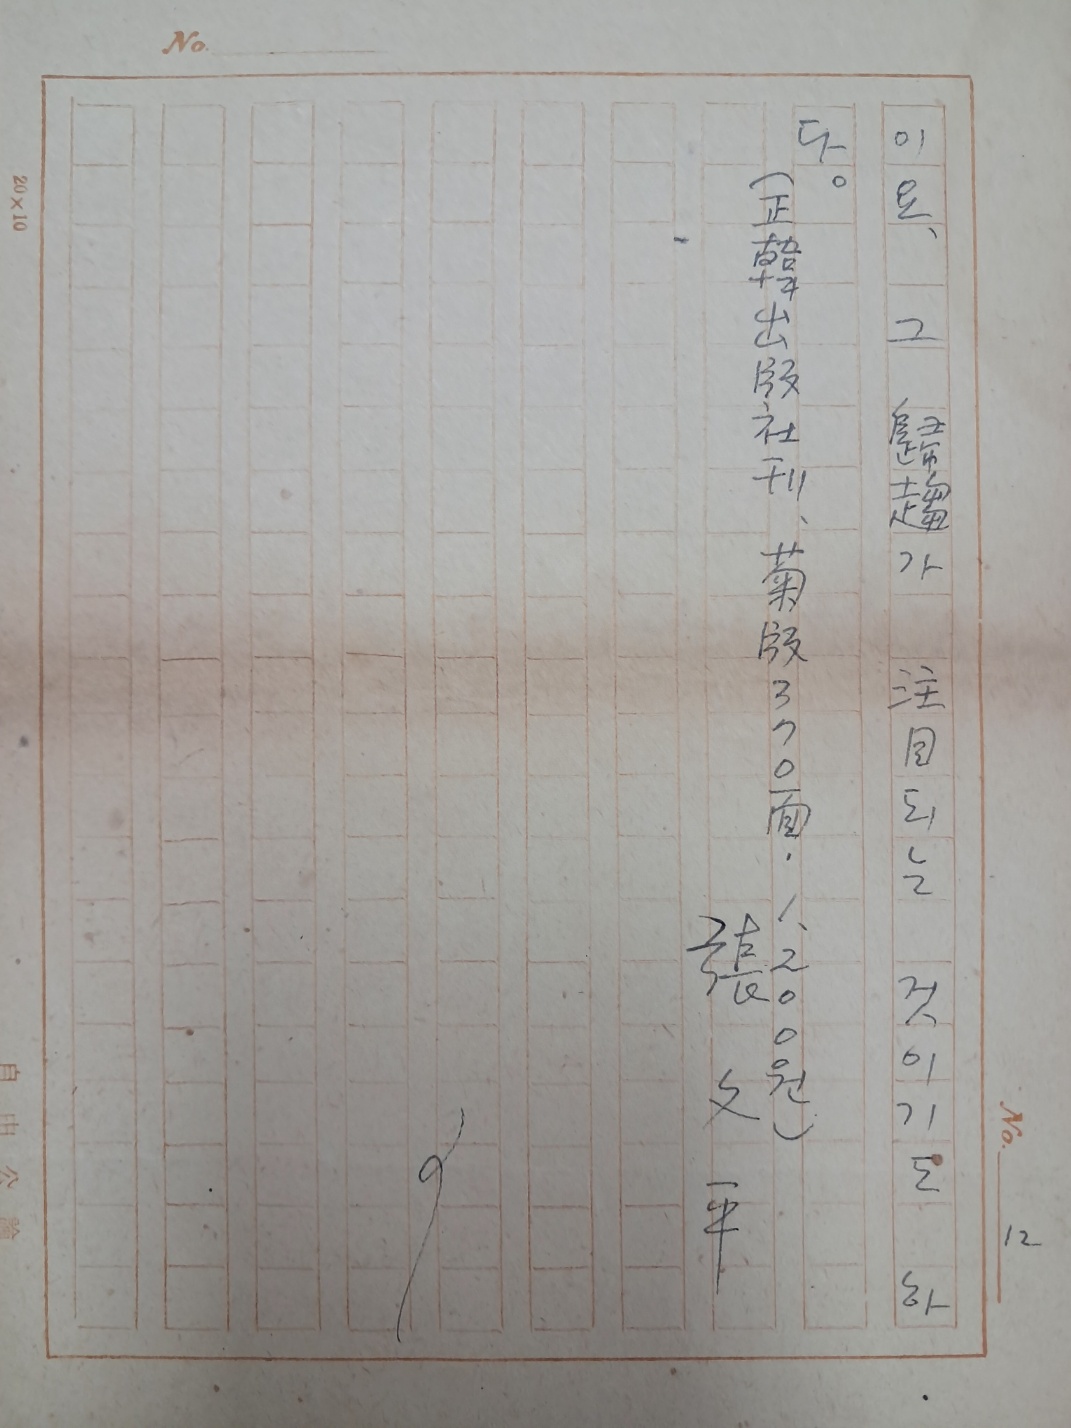 No.
No. 12
이요, 그 歸趨가 注目되는 것이기도 하
다。
(正韓出版社刊、菊版370面·1,200원)
張文平
20×10
自由公論